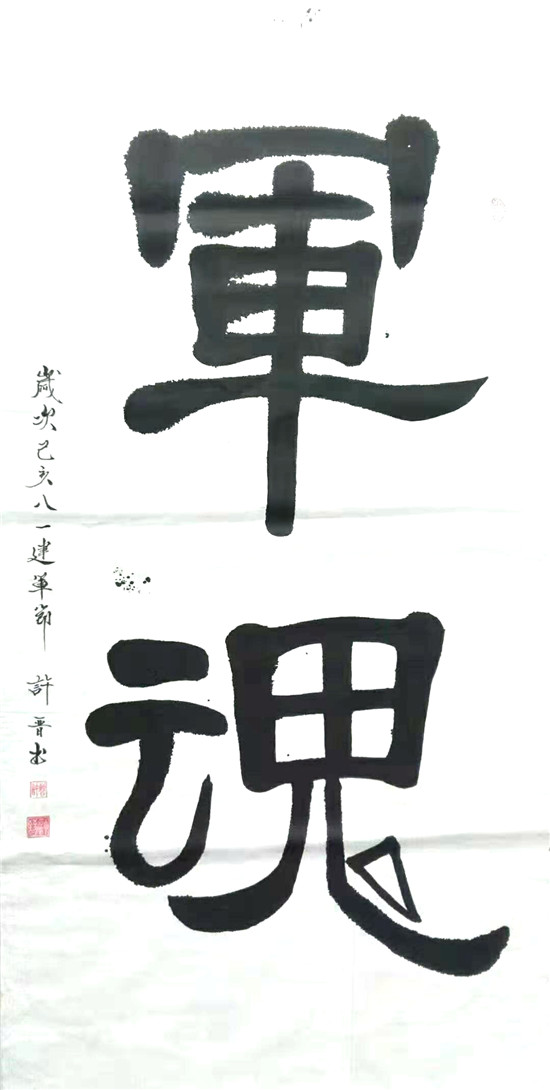 軍魂
歲次己亥八一建軍節 許晋書